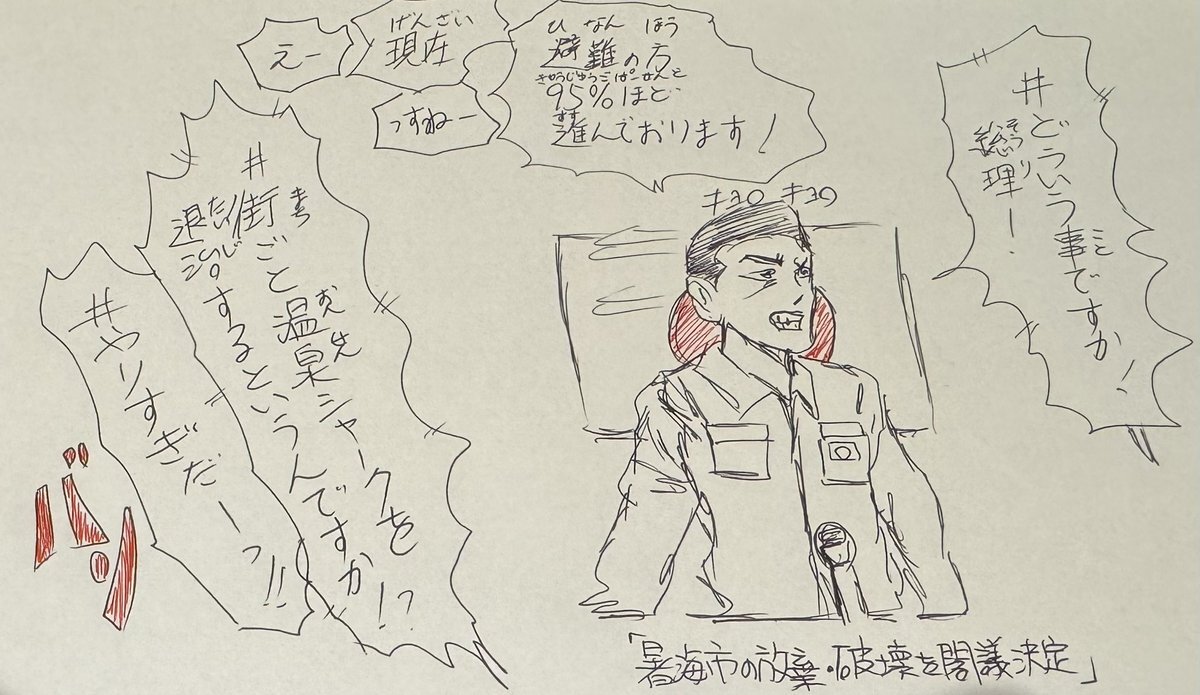 #どういう事ですか！
こと
総理ー
そうり
えー
げんざい
現在
っすねー
ひなん ほう
避難の方
きゅうじゅうごぱーせんと
95%ほど
すす
進んでおります！
キョロ キョロ
#街ごと温泉シャークを
まち おんせん
退治するというんですか!?
たいじ
#やりすぎだーっ!!
「暑海市の放棄・破壊を閣議決定」